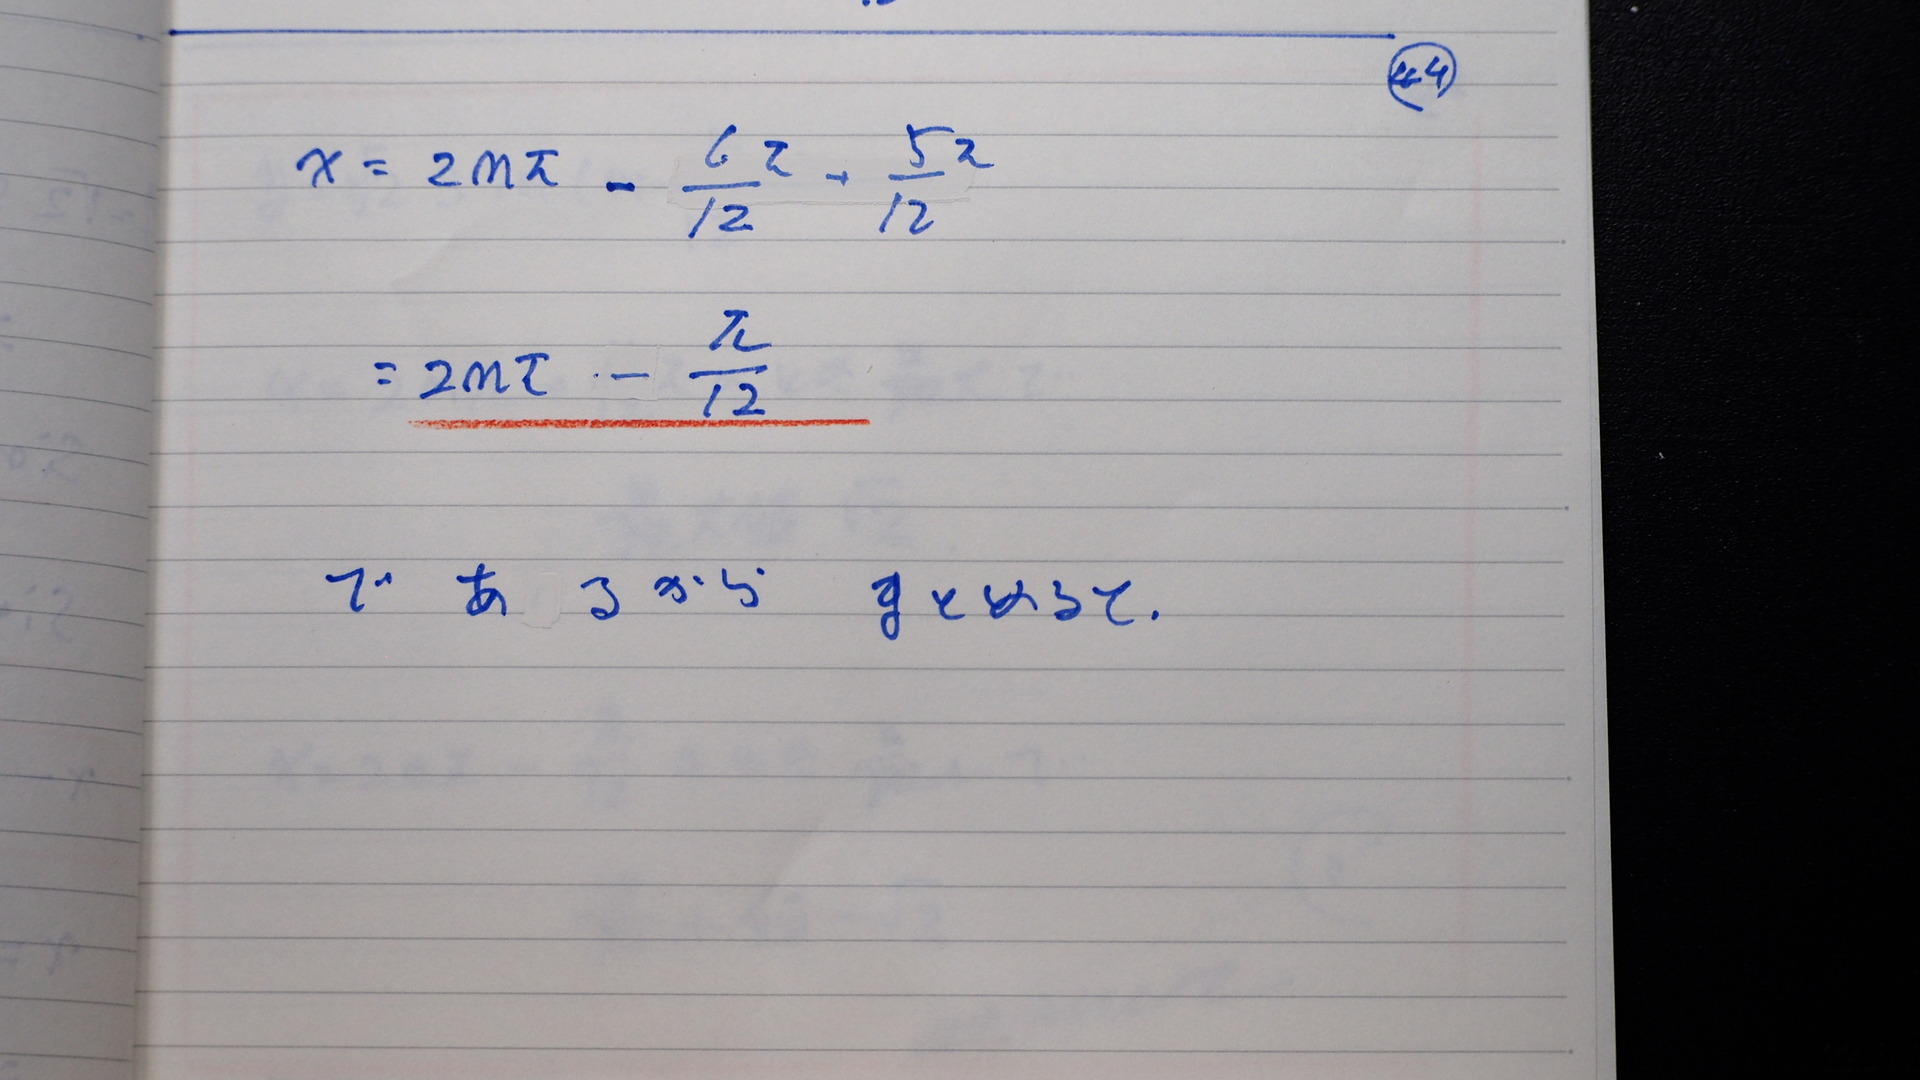 44
x = 2nπ - 6π/12 + 5π/12
= 2nπ - π/12
であるから まとめると.